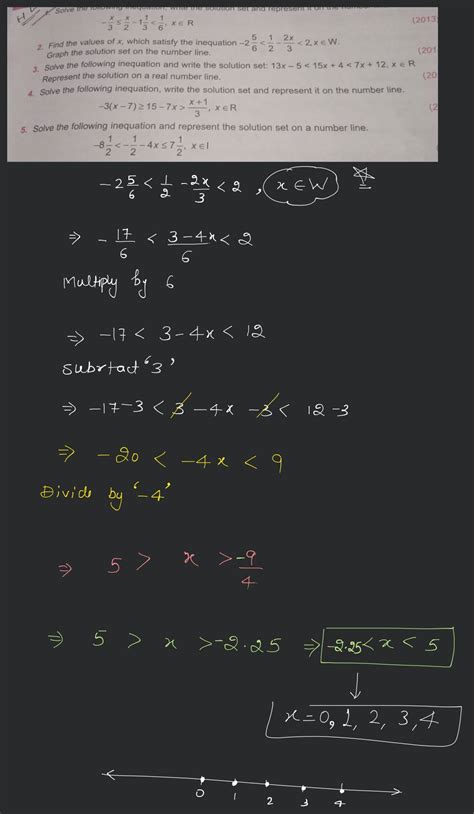 H.W
Solve the following inequation, write the solution set and represent it on the
-x/3 ≤ x/2 - 1 1/3 < 1/6, x ∈ R (2013)
2. Find the values of x, which satisfy the inequation -2 5/6 < 1/2 - 2x/3 < 2, x ∈ W.
Graph the solution set on the number line. (201
3. Solve the following inequation and write the solution set: 13x - 5 < 15x + 4 < 7x + 12, x ∈ R
Represent the solution on a real number line. (20
4. Solve the following inequation, write the solution set and represent it on the number line.
-3(x - 7) ≥ 15 - 7x > (x+1)/3, x ∈ R (2
5. Solve the following inequation and represent the solution set on a number line.
-8 1/2 < -1/2 - 4x ≤ 7 1/2, x ∈ I
-2 5/6 < 1/2 - 2x/3 < 2, x ∈ W
⇒ -17/6 < (3-4x)/6 < 2
Multiply by 6
⇒ -17 < 3-4x < 12
subrtact '3'
⇒ -17-3 < 3-4x-3 < 12-3
⇒ -20 < -4x < 9
Divide by '-4'
⇒ 5 > x > -9/4
⇒ 5 > x > -2.25 ⇒ -2.25 < x < 5
x = 0, 1, 2, 3, 4
0 1 2 3 4